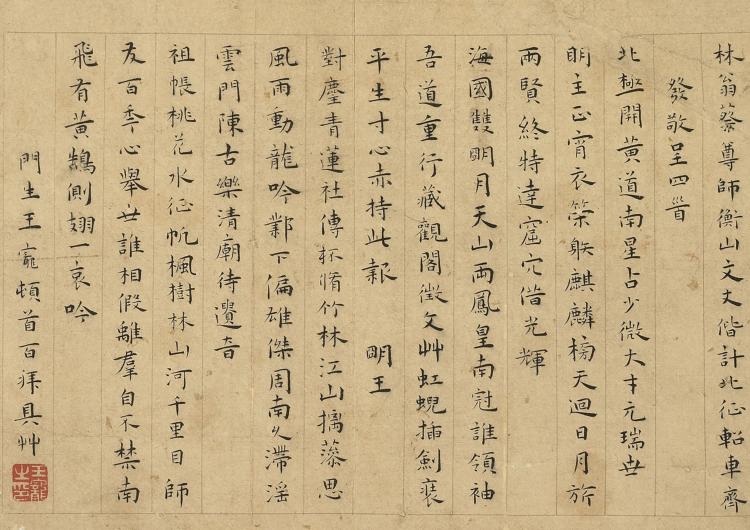 林翁蔡尊師衡山文丈偕計北征軺車齊
發敬呈四首
北極開黃道南星占少微大才元瑞世
明主正宵衣策躲麒麟榜天迴日月旂
兩賢終特達窟穴借光輝
海國雙明月天山兩鳳皇南冠誰領袖
吾道重行藏觀閣徵文艸虹蜺插劍裝
平生寸心赤持此報 明王
對塵青蓮社傳杯脩竹林江山摛藻思
風雨動龍吟鄴下偏雄傑周南久滯淫
雲門陳古樂清廟待遺音
祖帳桃花水征帆楓樹林山河千里目師
友百季心舉世誰相假離羣自不禁南
飛有黃鵠側翅一哀吟
門生王寵頓首百拜具艸
王寵之印